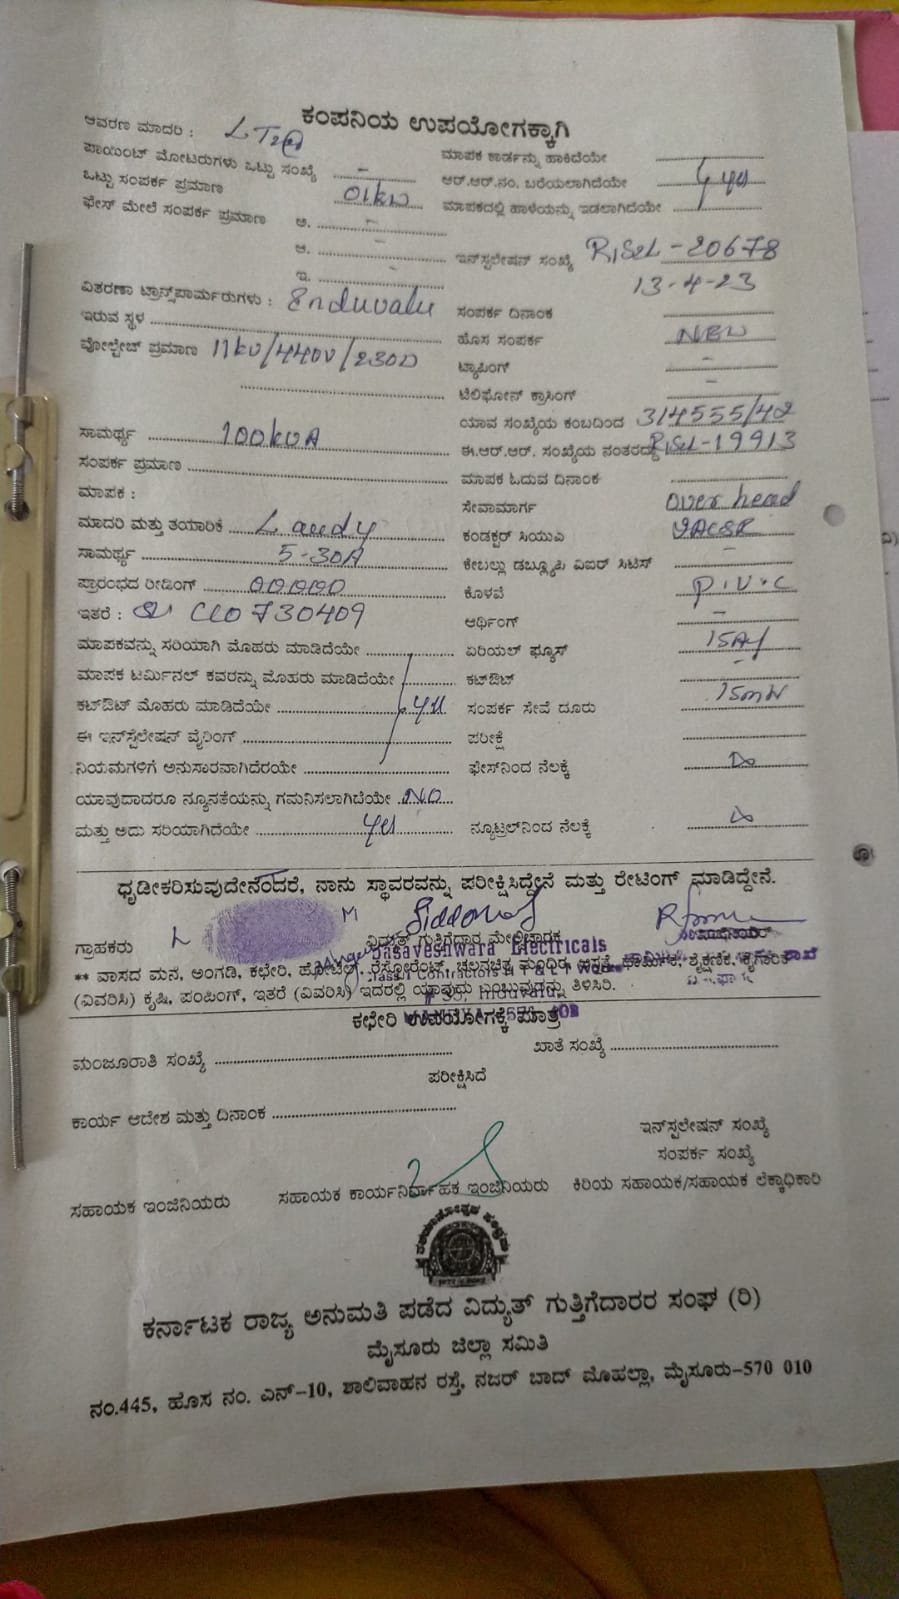 ಕಂಪನಿಯ ಉಪಯೋಗಕ್ಕಾಗಿ
ಆವರಣ ಮಾದರಿ : LT2(a)
ಪಾಯಿಂಟ್ ಮೋಟರುಗಳು ಒಟ್ಟು ಸಂಖ್ಯೆ -
ಒಟ್ಟು ಸಂಪರ್ಕ ಪ್ರಮಾಣ 01kw
ಫೇಸ್ ಮೇಲೆ ಸಂಪರ್ಕ ಪ್ರಮಾಣ ಅ. -
ಆ. -
ಇ. -
ವಿತರಣಾ ಟ್ರಾನ್ಸ್‌ಪಾರ್ಮರುಗಳು : Enduvalu
ಇರುವ ಸ್ಥಳ
ವೋಲ್ಟೇಜ್ ಪ್ರಮಾಣ 11kv/440v/230v
ಸಾಮರ್ಥ್ಯ 100kvA
ಸಂಪರ್ಕ ಪ್ರಮಾಣ
ಮಾಪಕ :
ಮಾದರಿ ಮತ್ತು ತಯಾರಿಕೆ
ಸಾಮರ್ಥ್ಯ 5-30A
ಪ್ರಾರಂಭದ ರೀಡಿಂಗ್ 00000
ಇತರೆ :
ಮಾಪಕವನ್ನು ಸರಿಯಾಗಿ ಮೊಹರು ಮಾಡಿದೆಯೇ
ಮಾಪಕ ಟರ್ಮಿನಲ್ ಕವರನ್ನು ಮೊಹರು ಮಾಡಿದೆಯೇ
ಕಟ್‌ಔಟ್ ಮೊಹರು ಮಾಡಿದೆಯೇ yes
ಈ ಇನ್‌ಸ್ಟಲೇಷನ್ ವೈರಿಂಗ್
ನಿಯಮಗಳಿಗೆ ಅನುಸಾರವಾಗಿದೆರಯೇ
ಯಾವುದಾದರೂ ನ್ಯೂನತೆಯನ್ನು ಗಮನಿಸಲಾಗಿದೆಯೇ NO
ಮತ್ತು ಅದು ಸರಿಯಾಗಿದೆಯೇ yes
ಮಾಪಕ ಕಾರ್ಡನ್ನು ಹಾಕಿದೆಯೇ
ಆರ್.ಆರ್.ನಂ. ಬರೆಯಲಾಗಿದೆಯೇ yes
ಮಾಪಕದಲ್ಲಿ ಹಾಳೆಯನ್ನು ಇಡಲಾಗಿದೆಯೇ
ಇನ್‌ಸ್ಟಲೇಷನ್ ಸಂಖ್ಯೆ 20678
13-4-23
ಸಂಪರ್ಕ ದಿನಾಂಕ
ಹೊಸ ಸಂಪರ್ಕ NEW
ಟ್ಯಾಪಿಂಗ್ -
ಟೆಲಿಫೋನ್ ಕ್ರಾಸಿಂಗ್ -
ಯಾವ ಸಂಖ್ಯೆಯ ಕಂಬದಿಂದ 314555/42
ಈ.ಆರ್.ಆರ್. ಸಂಖ್ಯೆಯ ನಂತರದ್ದು 19913
ಮಾಪಕ ಓದುವ ದಿನಾಂಕ
ಸೇವಾಮಾರ್ಗ over head
ಕಂಡಕ್ಟರ್ ಸಿಯುಎ
ಕೇಬಲ್ಲು ಡಬ್ಲ್ಯೂಪಿ ವಿಐರ್ ಸಿಟಿಸ್ -
ಕೊಳವೆ P.V.C
ಆರ್ಥಿಂಗ್ -
ಏರಿಯಲ್ ಫ್ಯೂಸ್
ಕಟ್‌ಔಟ್ -
ಸಂಪರ್ಕ ಸೇವೆ ದೂರು
ಪರೀಕ್ಷೆ
ಫೇಸ್‌ನಿಂದ ನೆಲಕ್ಕೆ
ನ್ಯೂಟ್ರಲ್‌ನಿಂದ ನೆಲಕ್ಕೆ
ಧೃಡೀಕರಿಸುವುದೇನೆಂದರೆ, ನಾನು ಸ್ಥಾವರವನ್ನು ಪರೀಕ್ಷಿಸಿದ್ದೇನೆ ಮತ್ತು ರೇಟಿಂಗ್ ಮಾಡಿದ್ದೇನೆ.
ಗ್ರಾಹಕರು ವಿದ್ಯುತ್ ಗುತ್ತಿಗೆದಾರ ಮೇಲ್ವಿಚಾರಕ
Basaveshwara Electricals
** ವಾಸದ ಮನೆ, ಅಂಗಡಿ, ಕಛೇರಿ, ಹೋಟೆಲ್, ರೆಸ್ಟೋರೆಂಟ್, ಚಲನಚಿತ್ರ ಮಂದಿರ, ಆಸ್ಪತ್ರೆ, ಶೈಕ್ಷಣಿಕ, ಕೈಗಾರಿಕೆ
(ವಿವರಿಸಿ) ಕೃಷಿ, ಪಂಪಿಂಗ್, ಇತರೆ (ವಿವರಿಸಿ) ಇದರಲ್ಲಿ ಯಾವುದು ಎಂಬುವುದನ್ನು ತಿಳಿಸಿರಿ.
ಕಛೇರಿ ಉಪಯೋಗಕ್ಕೆ ಮಾತ್ರ
ಮಂಜೂರಾತಿ ಸಂಖ್ಯೆ ಖಾತೆ ಸಂಖ್ಯೆ
ಪರೀಕ್ಷಿಸಿದೆ
ಕಾರ್ಯ ಆದೇಶ ಮತ್ತು ದಿನಾಂಕ
ಇನ್‌ಸ್ಟಲೇಷನ್ ಸಂಖ್ಯೆ
ಸಂಪರ್ಕ ಸಂಖ್ಯೆ
ಸಹಾಯಕ ಇಂಜಿನಿಯರು ಸಹಾಯಕ ಕಾರ್ಯನಿರ್ವಾಹಕ ಇಂಜಿನಿಯರು ಕಿರಿಯ ಸಹಾಯಕ/ಸಹಾಯಕ ಲೆಕ್ಕಾಧಿಕಾರಿ
ಕರ್ನಾಟಕ ರಾಜ್ಯ ಅನುಮತಿ ಪಡೆದ ವಿದ್ಯುತ್ ಗುತ್ತಿಗೆದಾರರ ಸಂಘ (ರಿ)
ಮೈಸೂರು ಜಿಲ್ಲಾ ಸಮಿತಿ
ನಂ.445, ಹೊಸ ನಂ. ಎನ್-10, ಶಾಲಿವಾಹನ ರಸ್ತೆ, ನಜರ್ ಬಾದ್ ಮೊಹಲ್ಲಾ, ಮೈಸೂರು-570 010